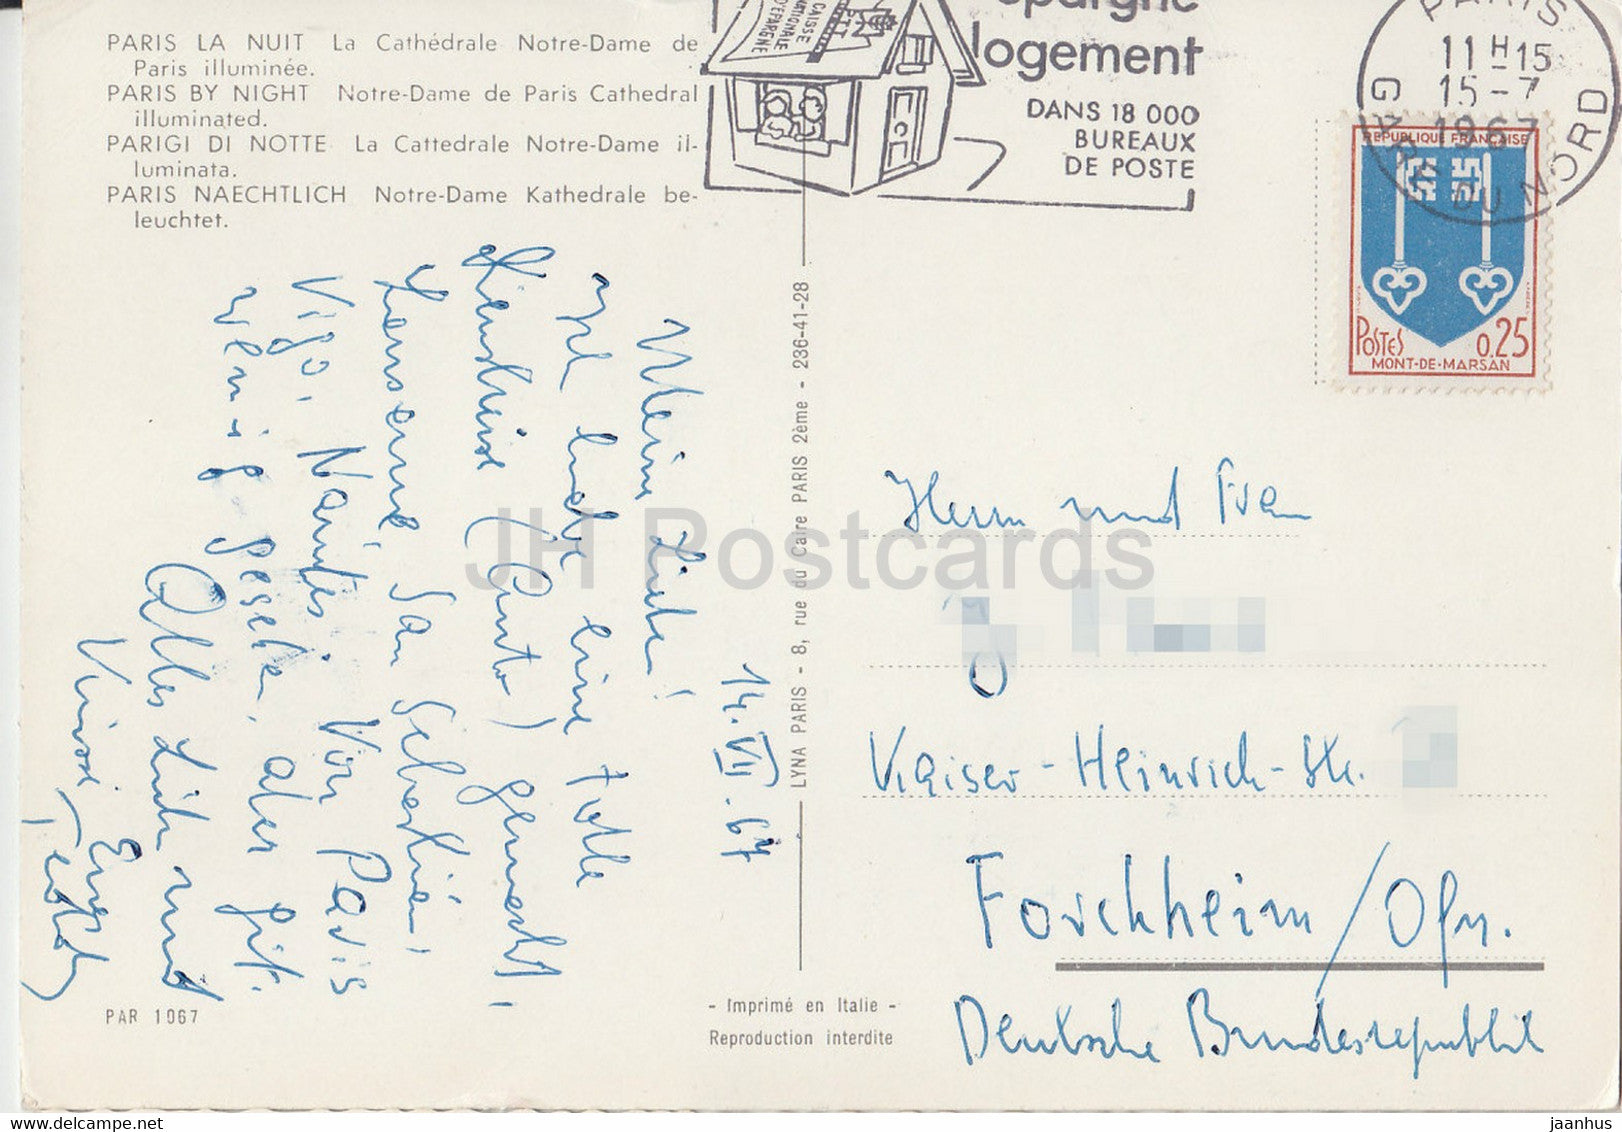 PARIS LA NUIT La Cathédrale Notre-Dame de
Paris illuminée.
PARIS BY NIGHT Notre-Dame de Paris Cathedral
illuminated.
PARIGI DI NOTTE La Cattedrale Notre-Dame il-
luminata.
PARIS NAECHTLICH Notre-Dame Kathedrale be-
leuchtet.
CAISSE
NATIONALE
D'EPARGNE
PTT
épargne
logement
DANS 18 000
BUREAUX
DE POSTE
PARIS
GARE DU NORD
11H15
15-7
1967
REPUBLIQUE FRANÇAISE
POSTES
0,25
MONT-DE-MARSAN
14.VII.67
Meine Liebe!
Ich habe eine tolle
(Auto) gemacht,
San Sebastian,
Vigo, Nantes. Von Paris
wenig gesehen, aber gut.
Alles Liebe und
LYNA PARIS - 8, rue du Caire PARIS 2ème - 236-41-28
Herrn und Frau
Kaiser-Heinrich-Str.
Forchheim/Ofr.
Deutsche Bundesrepublik
PAR 1067
- Imprimé en Italie -
Reproduction interdite
JH Postcards
jaanhus
www.delcampe.net